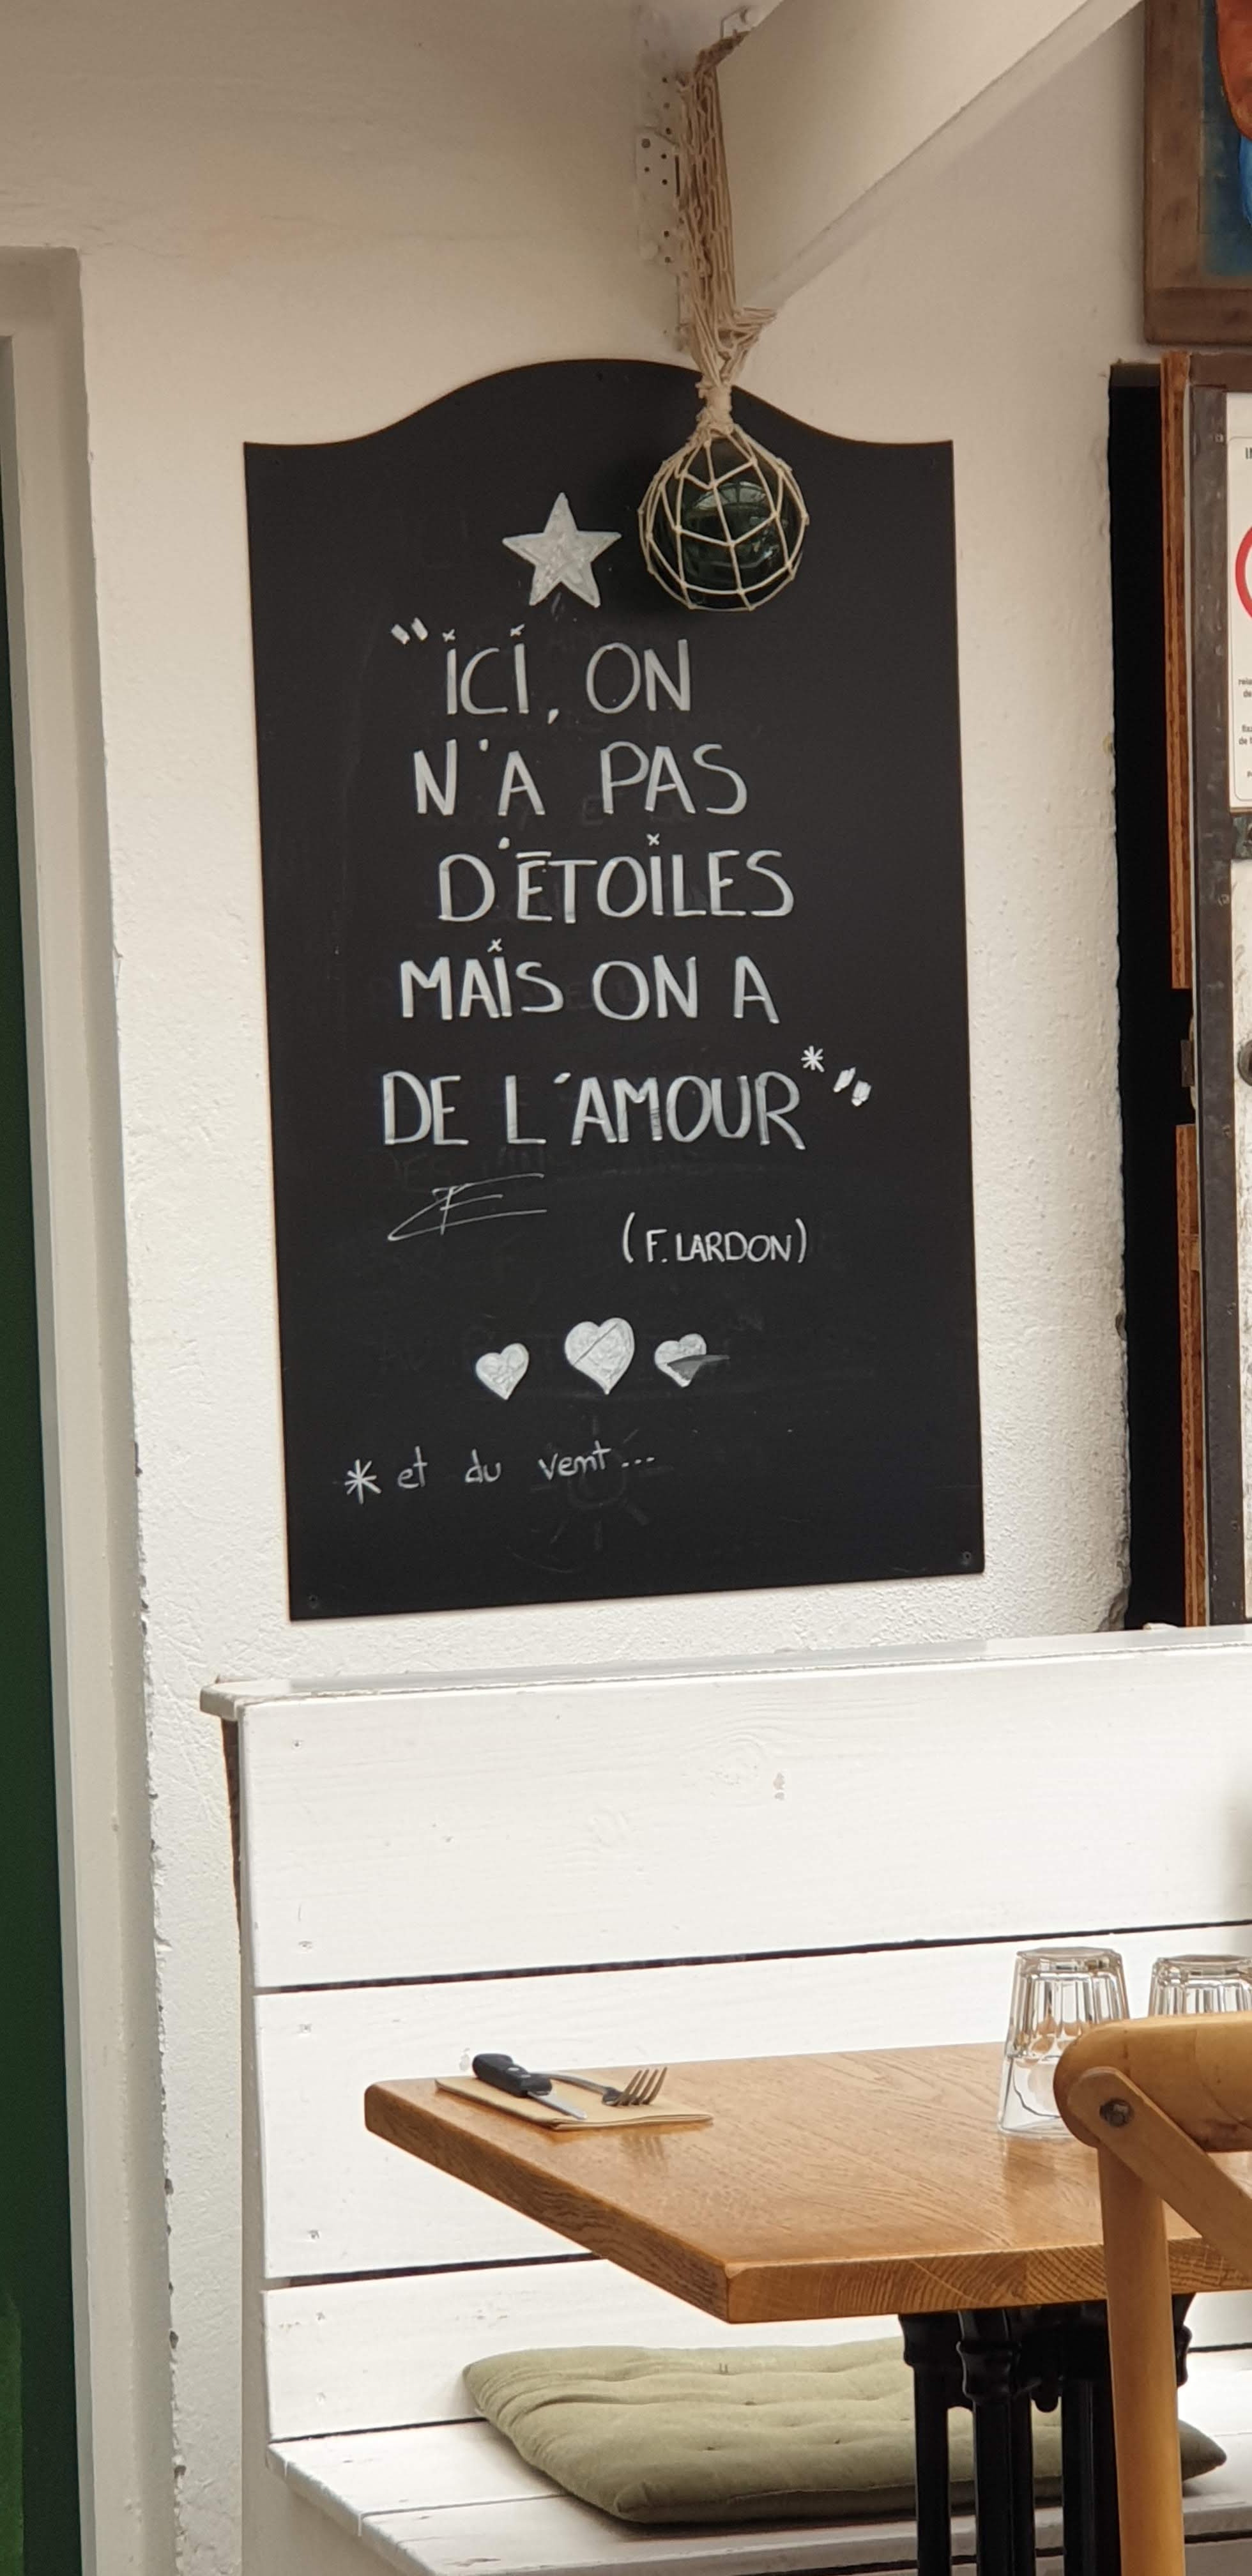 "ICI, ON
N'A PAS
D'ÉTOILES
MAIS ON A
DE L'AMOUR*"
(F. LARDON)
* et du vent...